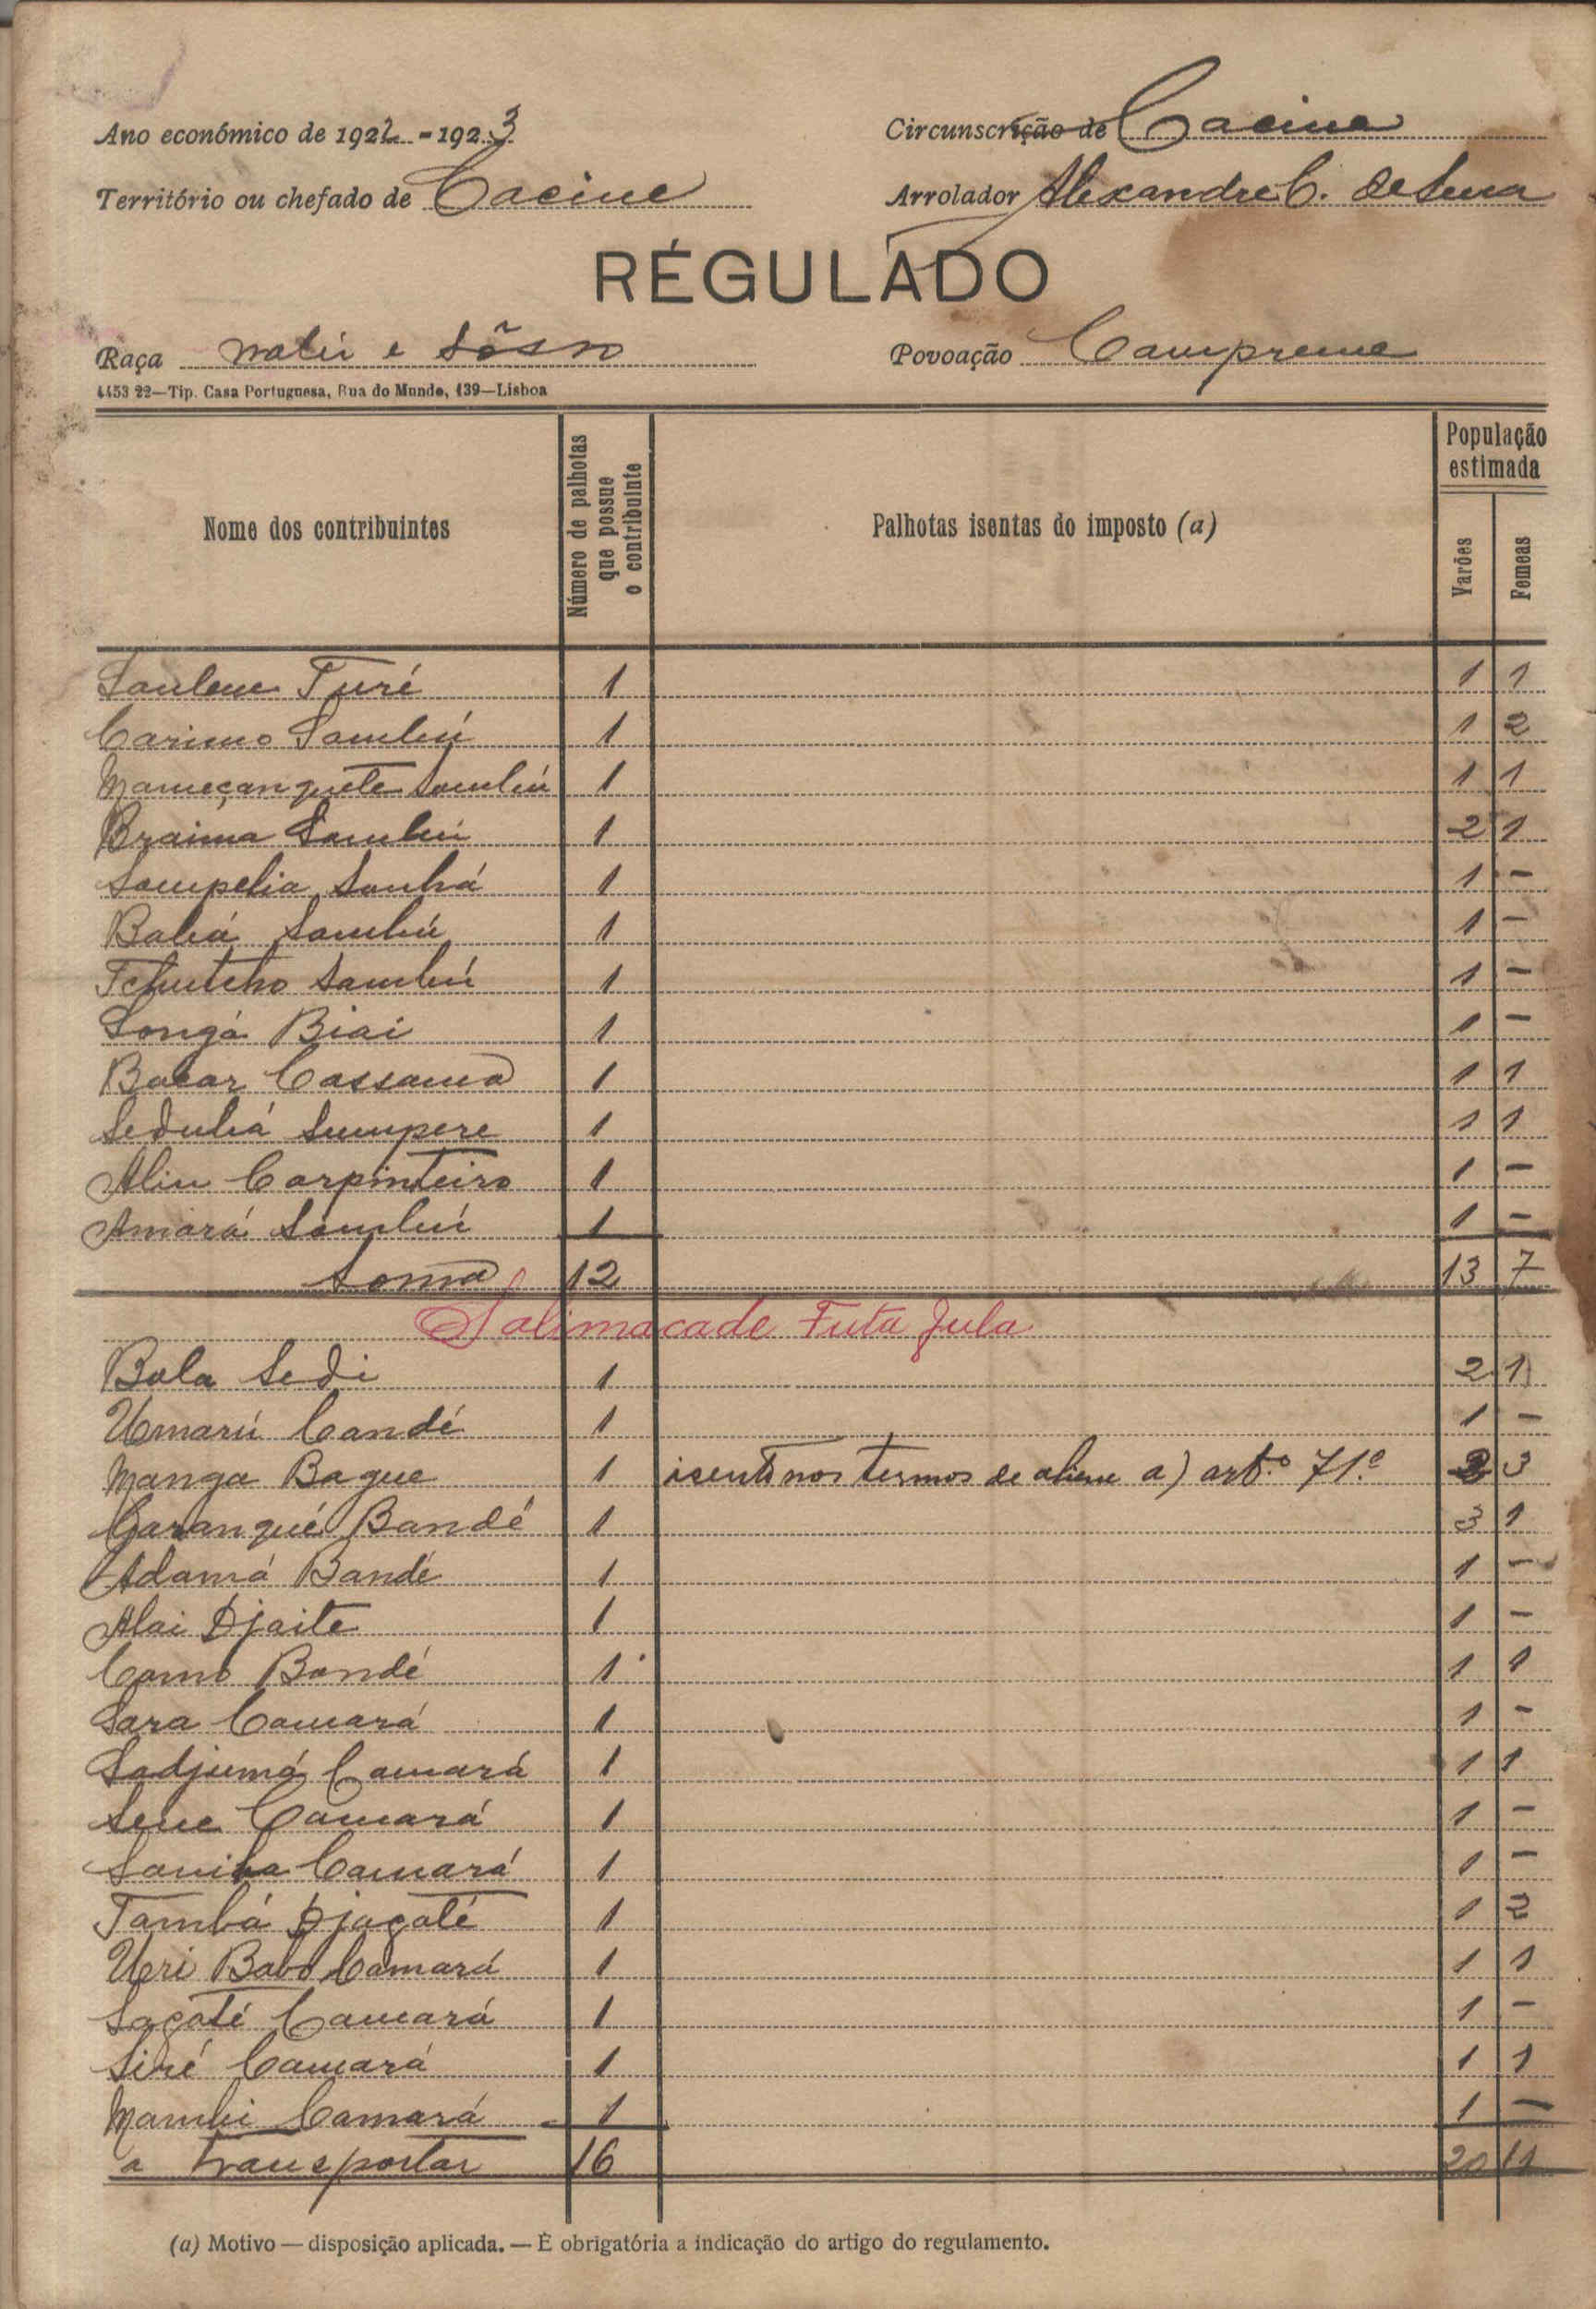 Ano económico de 1922-1923 Circunscrição de Cacine
Território ou chefado de Cacine Arrolador Alexandre C. de Sena
RÉGULADO
Raça nalú e sôsso Povoação Campreme
4453 22—Tip. Casa Portuguesa, Rua do Mundo, 139—Lisboa
Nome dos contribuintes Número de palhotas que possue o contribuinte Palhotas isentas do imposto (a) População estimada Varões Femeas
Turé 1 1 1
Carimo Sambú 1 1 2
Sambú 1 1 1
Braima Sambú 1 2 1
Sanhá 1 1 —
Sambú 1 1 —
Sambú 1 1 —
Songá Biai 1 1 —
Bacar Cassamá 1 1 1
Sumpere 1 1 1
Aliu Carpinteiro 1 1 —
Amará Sambú 1 1 —
Soma 12 13 7
Salimacade Futa Jula
Bala Sedi 1 2 1
Umarú Candé 1 1 —
Manga Bague 1 isento nos termos de a) artº 71º 2 3
Garanqué Bandé 1 3 1
Adamá Bandé 1 1 —
Alai Djaite 1 1 —
Como Bandé 1 1 1
Sara Camará 1 1 —
Sadjumá Camará 1 1 1
Sene Camará 1 1 —
Camará 1 1 —
Tambá Djaçaté 1 1 2
Uri Babo Camará 1 1 1
Saçaté Camará 1 1 —
Siré Camará 1 1 1
Mambi Camará 1 1 —
a transportar 16 20 11
(a) Motivo — disposição aplicada. — É obrigatória a indicação do artigo do regulamento.